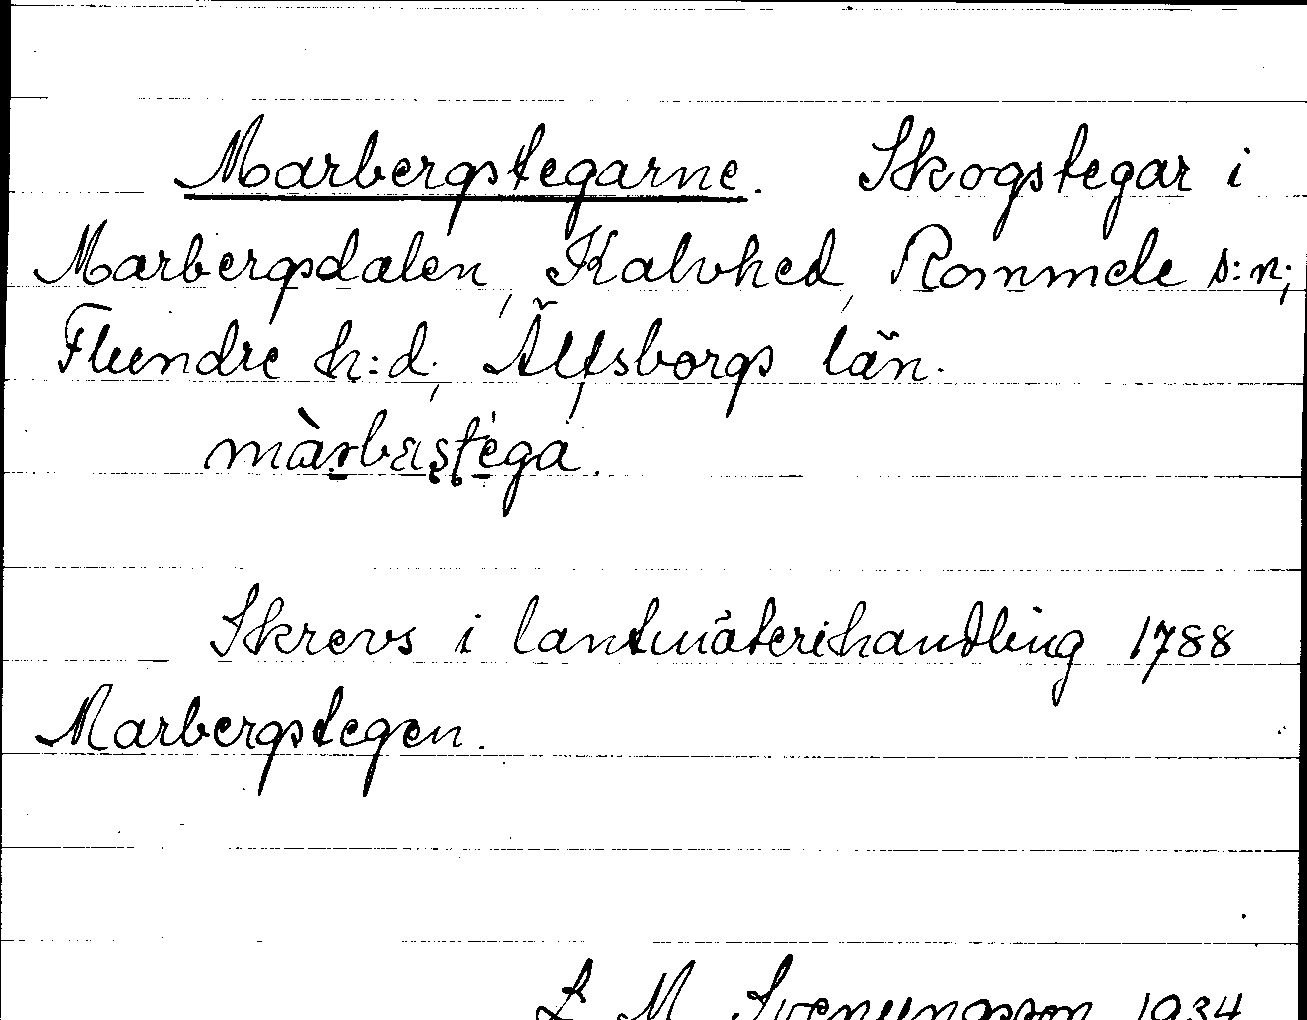 Marbergstegarne. Skogstegar i
Marbergsdalen, Kalvhed, Rommele s:n;
Flundre h:d, Älfsborgs län.
màrbæstéga.
Skrevs i lantmäterihandling 1788
Marbergstegen.
S. M. Svenungsson 1934